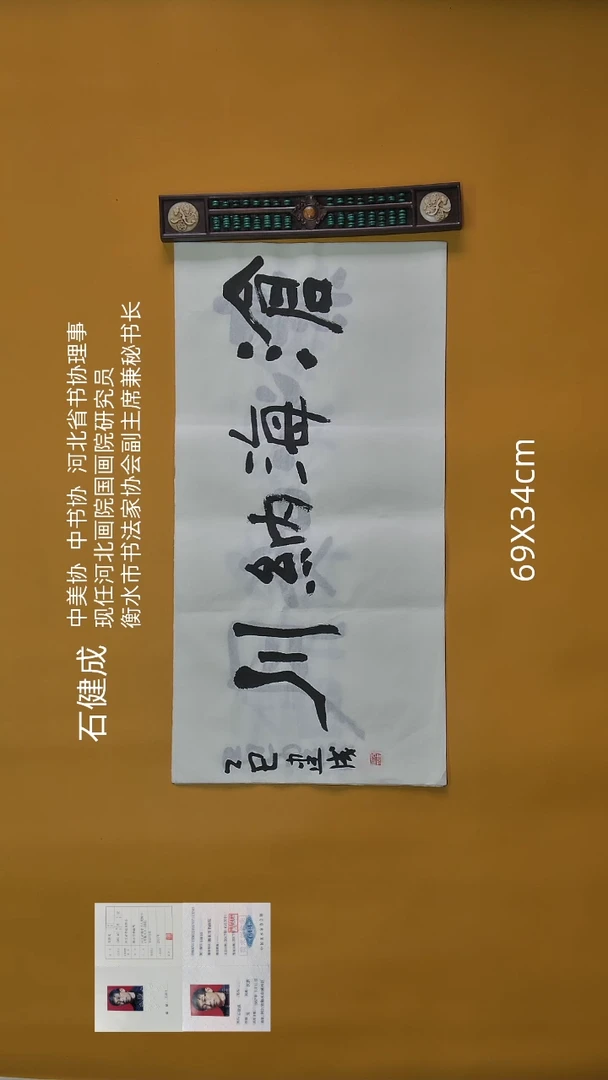 石健成
中美协 中书协 河北省书协理事
现任河北画院国画院研究员
衡水市书法家协会副主席兼秘书长
滄海納川
乙巳
健成
69X34cm